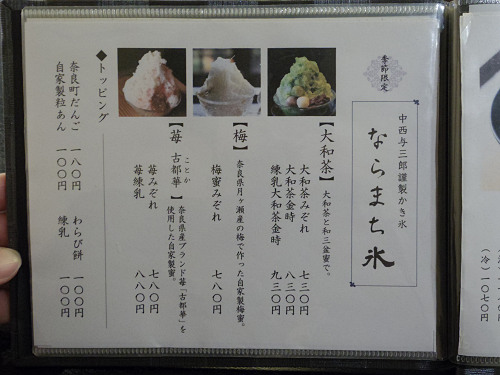 季節限定
中西与三郎謹製かき氷
ならまち氷
【大和茶】 大和茶と和三盆蜜で。
大和茶みぞれ 七三〇円
大和茶金時 八三〇円
練乳大和茶金時 九三〇円
【梅】 奈良県月ヶ瀬産の梅で作った自家製梅蜜。
梅蜜みぞれ 七八〇円
【苺 古都華】 奈良県産ブランド苺「古都華」を
ことか
使用した自家製蜜。
苺みぞれ 七八〇円
苺練乳 八八〇円
◆トッピング
奈良町だんご 一八〇円
自家製粒あん 一〇〇円
わらび餅 一〇〇円
練乳 一〇〇円
(冷)一〇七〇円